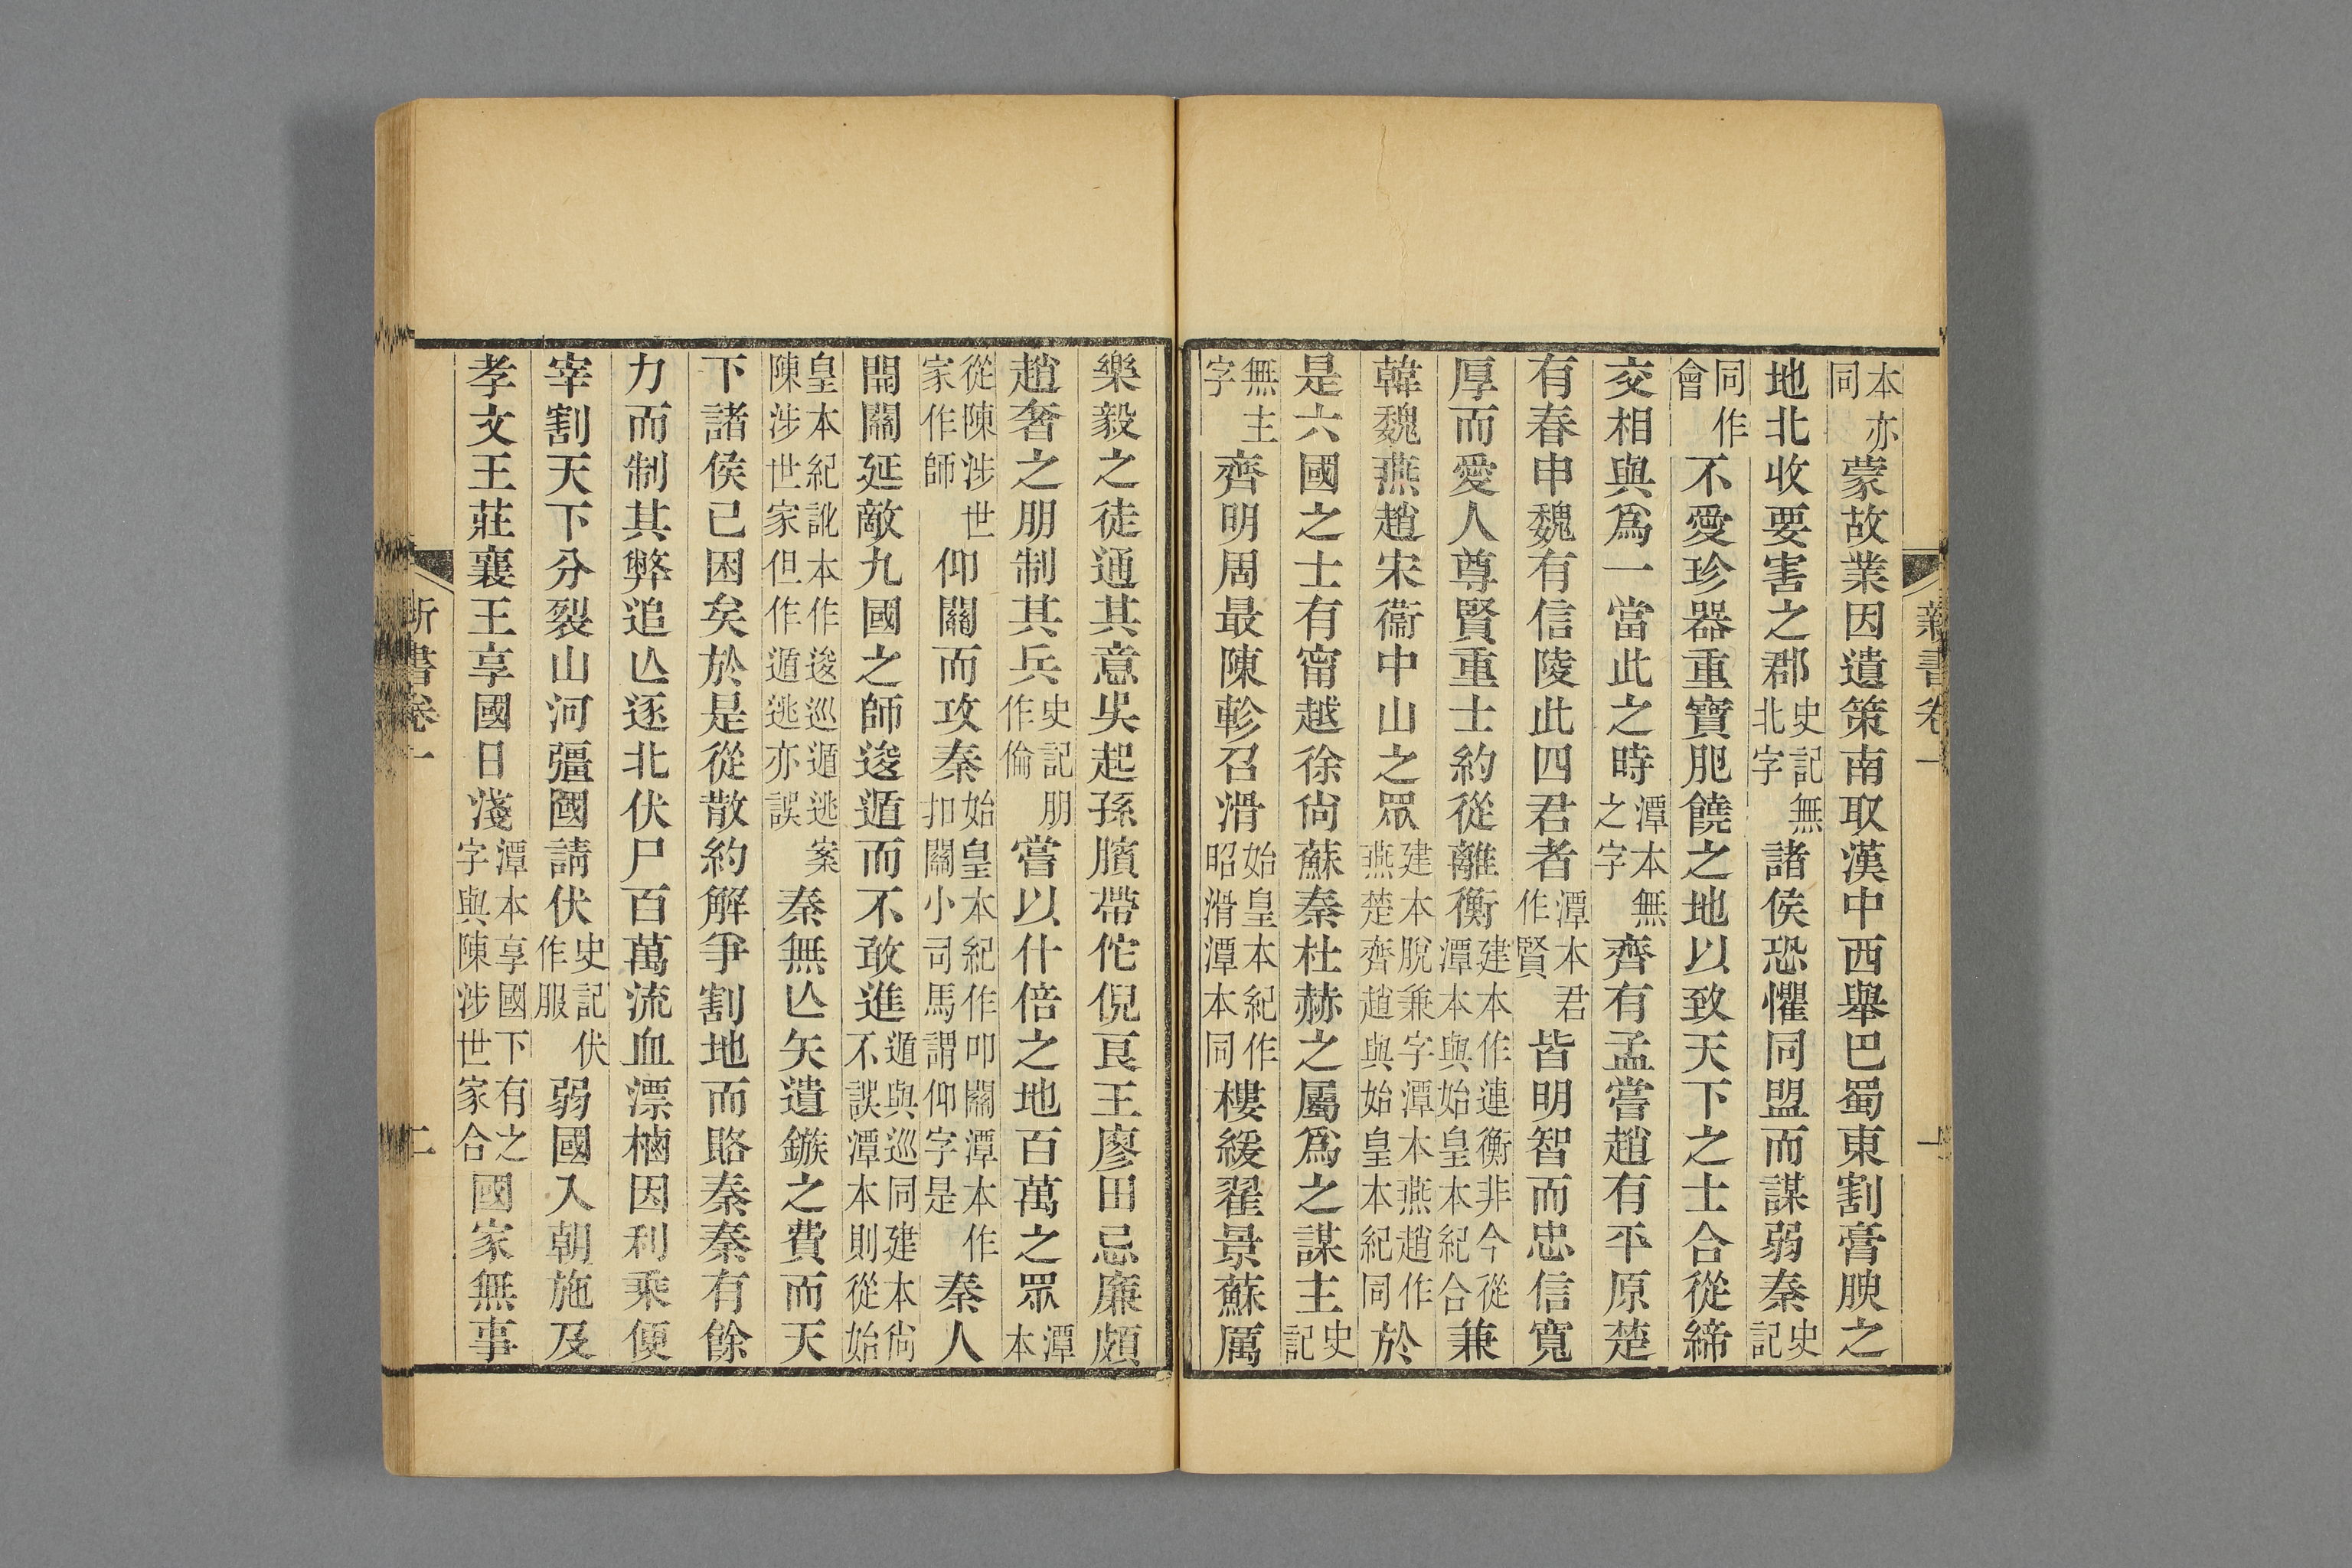 新書卷一 一
本亦同蒙故業因遺策南取漢中西舉巴蜀東割膏腴之
地北收要害之郡史記無北字諸侯恐懼同盟而謀弱秦史記
同作會不愛珍器重寶肥饒之地以致天下之士合從締
交相與爲一當此之時潭本無之字齊有孟嘗趙有平原楚
有春申魏有信陵此四君者潭本君作賢皆明智而忠信寬
厚而愛人尊賢重士約從離衡建本作連衡非今從潭本與始皇本紀合兼
韓魏燕趙宋衞中山之眾建本脫兼字潭本燕趙作燕楚齊趙與始皇本紀同於
是六國之士有甯越徐尙蘇秦杜赫之屬爲之謀主史記
無主字齊明周最陳軫召滑始皇本紀作昭滑潭本同樓緩翟景蘇厲
樂毅之徒通其意吳起孫臏帶佗倪良王廖田忌廉頗
趙奢之朋制其兵史記朋作倫嘗以什倍之地百萬之眾潭本
從陳涉世家作師仰關而攻秦始皇本紀作叩關潭本作扣關小司馬謂仰字是秦人
開關延敵九國之師逡遁而不敢進遁與巡同建本尙不誤潭本則從始
皇本紀訛本作逡巡遁逃案陳涉世家但作遁逃亦誤秦無亾矢遺鏃之費而天
下諸侯已困矣於是從散約解爭割地而賂秦秦有餘
力而制其弊追亾逐北伏尸百萬流血漂櫓因利乘便
宰割天下分裂山河彊國請伏史記伏作服弱國入朝施及
孝文王莊襄王享國日淺潭本享國下有之字與陳涉世家合國家無事
新書卷一 二